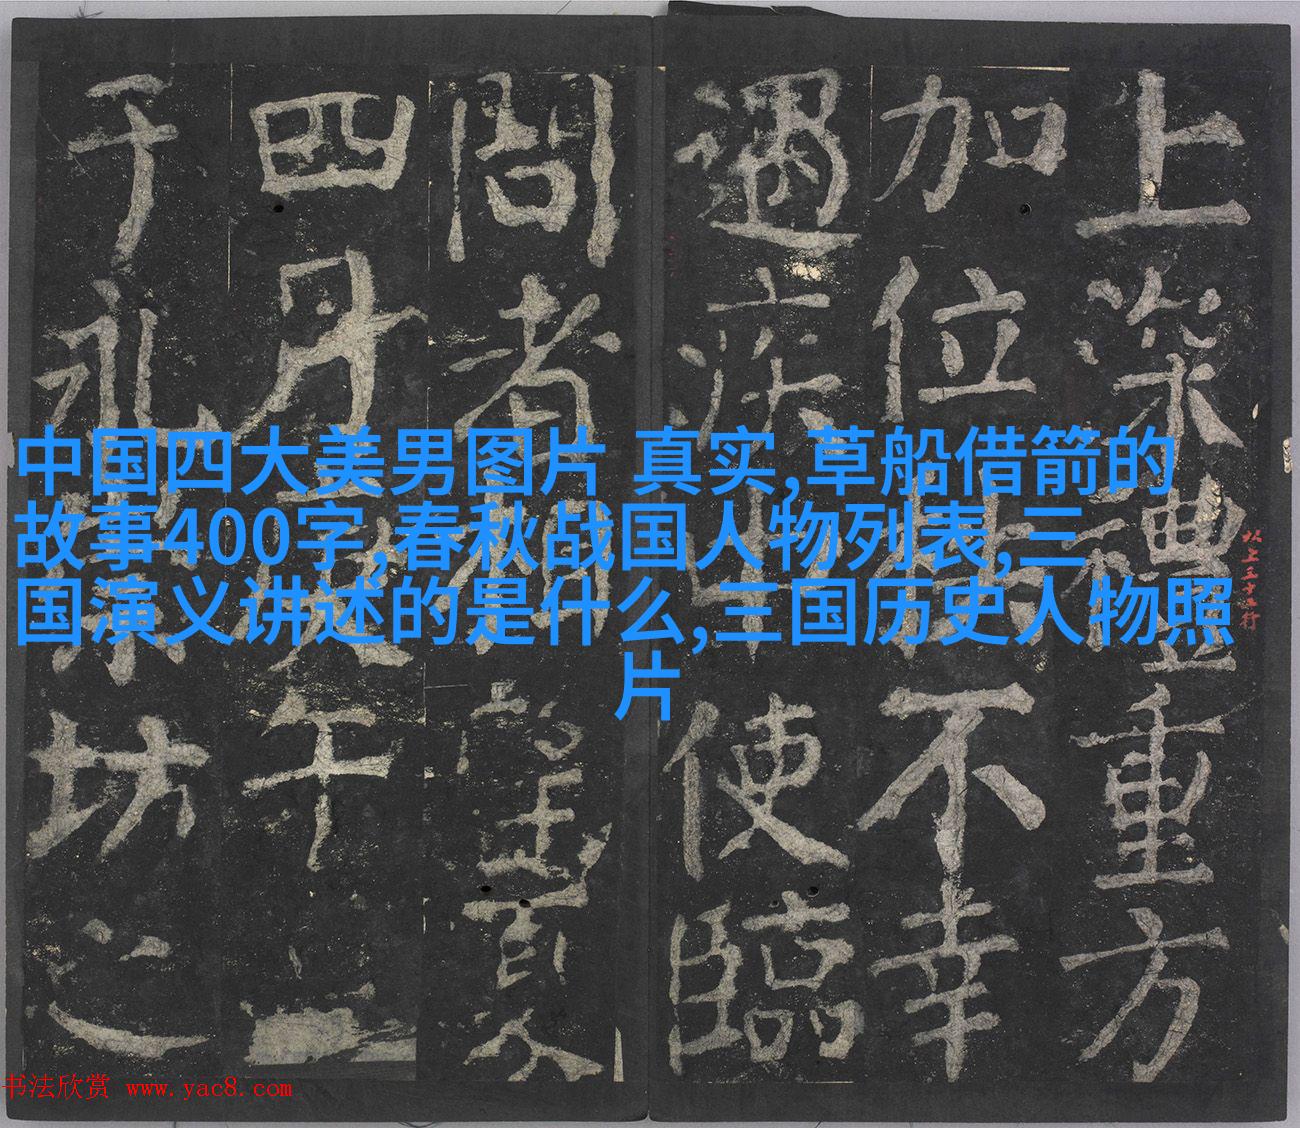 上深禮重方
加位不幸
遇疾使臨
問者相望夏
四月午
于永坊之
中国四大美男图片 真实,草船借箭的
故事400字,春秋战国人物列表,三
国演义讲述的是什么,三国历史人物照
片
书法欣赏 www.yac8.com